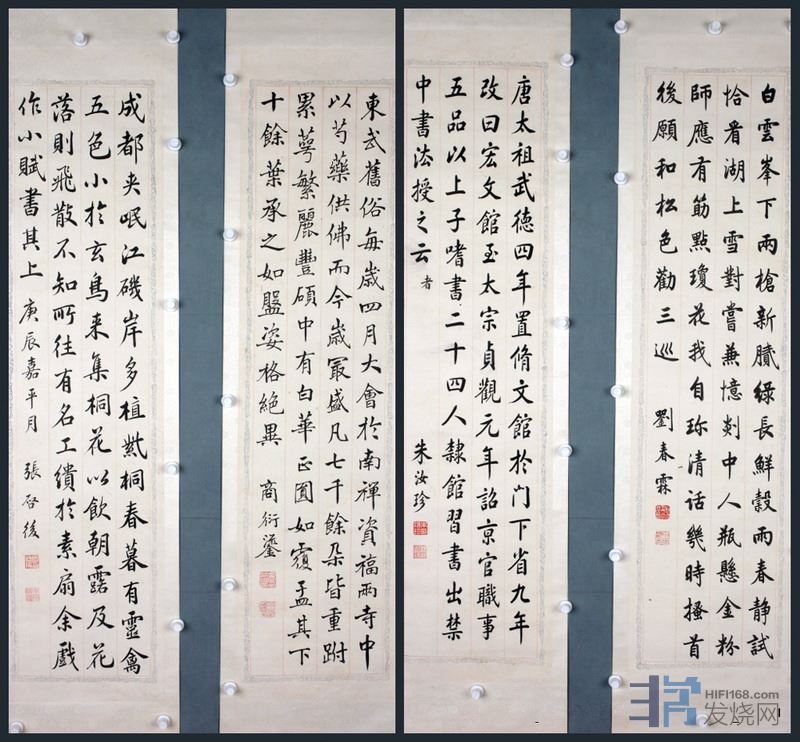 白雲峯下兩槍新膩綠長鮮穀雨春靜試
恰看湖上雪對嘗兼憶剡中人瓶懸金粉
師應有筋點瓊花我自珎清话幾時搔首
後願和松色勸三巡 劉春霖
唐太祖武德四年置脩文館於门下省九年
改曰宏文館至太宗貞觀元年詔京官職事
五品以上子嗜書二十四人隸館習書出禁
中書法授之云者 朱汝珍
東武舊俗每歳四月大會於南禪資福两寺中
以芍藥供佛而今歳冣盛凡七千餘朶皆重跗
累萼繁麗豐碩中有白華正圓如覆盂其下
十餘葉承之如盤姿格絕異 商衍鎏
成都夹岷江磯岸多植紫桐春暮有靈禽
五色小於玄鳥来集桐花以飲朝露及花
落則飛散不知所往有名工繢於素扇余戲
作小賦書其上 庚辰嘉平月 張啓後
HIFI168.com
发烧网